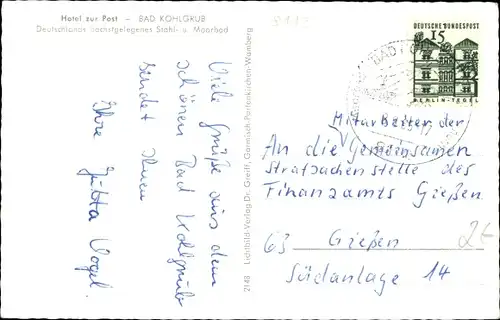 Hotel zur Post - BAD KOHLGRUB
Deutschlands höchstgelegenes Stahl- u. Moorbad
Viele Grüße aus dem
schönen Bad Kohlgrub
sendet Ihnen
Ihre Jutta Vogel.
2148 Lichtbild-Verlag Dr. Greifz, Garmisch-Partenkirchen-Wamberg
DEUTSCHE BUNDESPOST
15
BERLIN-TEGEL
BAD KO
Mitarbeiter der
An die Gemeinsamen
Strafsachenstelle des
Finanzamts Gießen
63 Gießen
Südanlage 14
2€